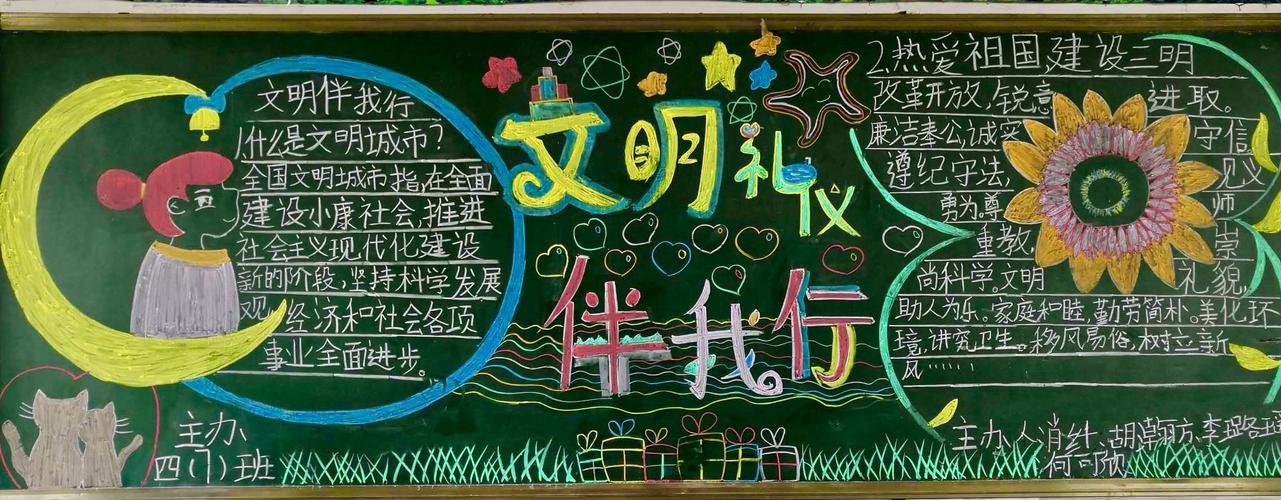 文明伴我行
什么是文明城市?
全国文明城市指,在全面
建设小康社会,推进
社会主义现代化建设
新的阶段,坚持科学发展
观,经济和社会各项
事业全面进步。
主办、
四(1)班
文明礼仪
伴我行
2.热爱祖国,建设三明
改革开放,锐意进取。
廉洁奉公,诚实守信
遵纪守法,见义
勇为.尊师
重教,崇
尚科学.文明礼貌,
助人为乐。家庭和睦,勤劳简朴。美化环
境,讲究卫生。移风易俗,树立新
风······
主办人肖纤、胡翰方、李璐
何可欣